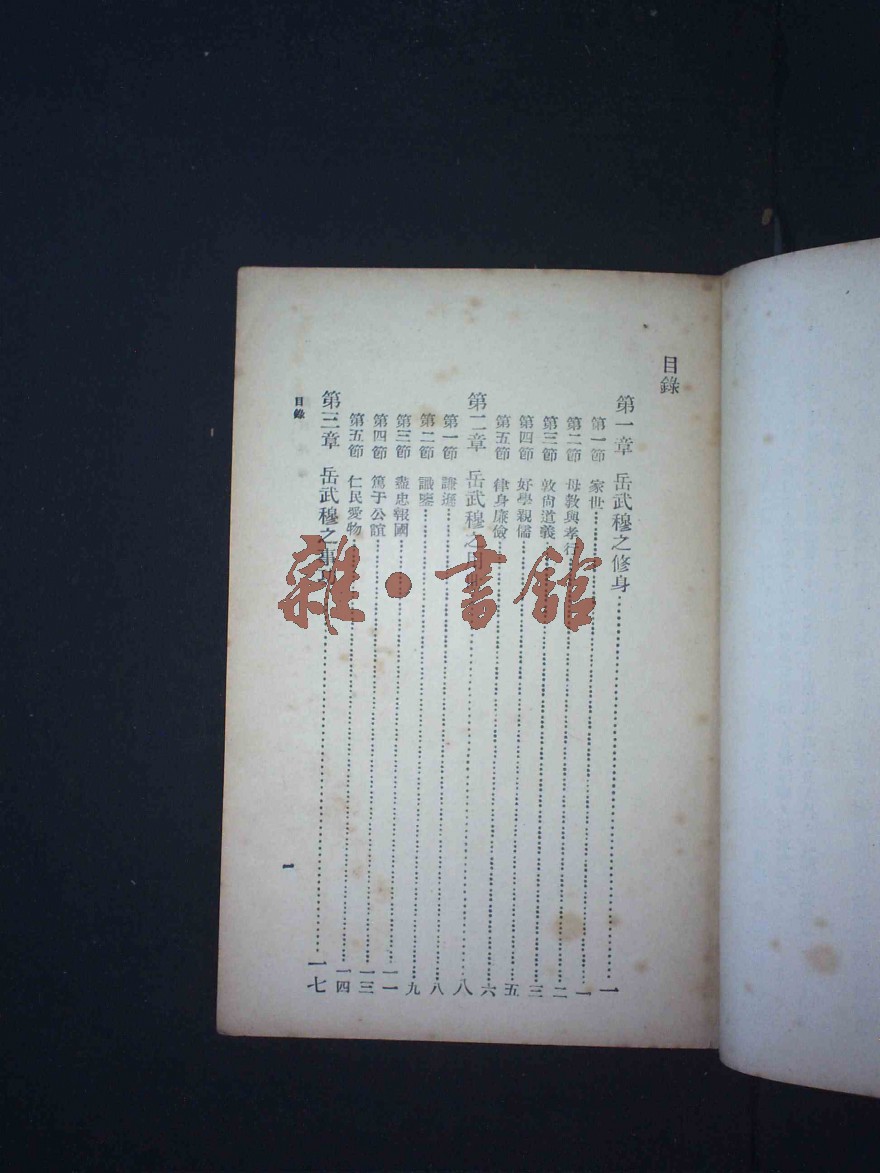 目錄
第一章 岳武穆之修身……一
第一節 家世……一
第二節 母教與孝行……二
第三節 敦尚道義……三
第四節 好學親儒……五
第五節 律身廉儉……六
第二章 岳武穆之……八
第一節 謙遜……八
第二節 識鑒……九
第三節 盡忠報國……一一
第四節 篤于公誼……一三
第五節 仁民愛物……一四
第三章 岳武穆之事……一七
目錄
一
雜·書館